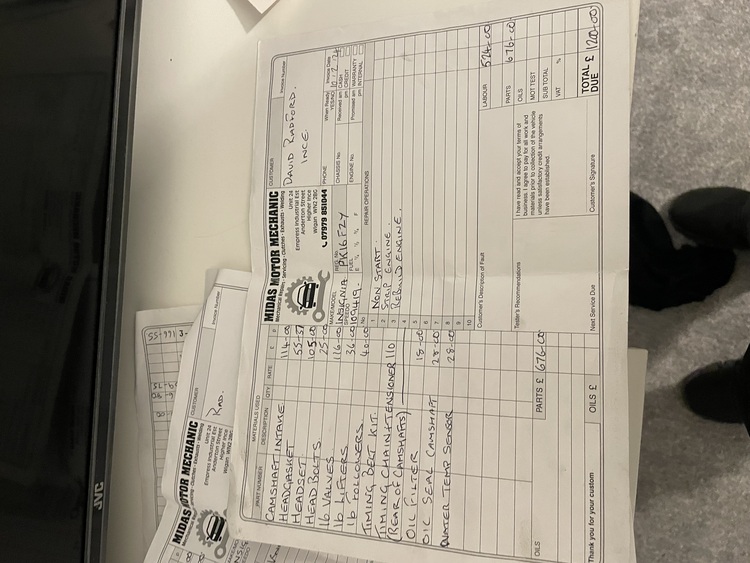 MIDAS MOTOR MECHANIC
Servicing - Clutches - Exhausts - Welding
Unit 24
Empress Industrial Est
Anderton Street
Higher Ince
Wigan WN2 2BG
07979 851044
CUSTOMER
Invoice Number
DAVID RADFORD.
INCE
PHONE
When Ready
Invoice Date
YES/NO
MAKE/MODEL
INSIGNIA
REG. No.
PK16FZY
CHASSIS No
Received am
pm
CASH
CREDIT
SPEEDO
109419
FUEL
E ¼ ½ ¾ F
ENGINE No.
Promised am
pm
WARRANTY
INTERNAL
No
REPAIR OPERATIONS
1 NON START.
2 STRIP ENGINE
3 REBUILD ENGINE.
4
5
6
7
8
9
10
Customer's Description of Fault
Tester's Recommendations
I have read and accept your terms of
business. I agree to pay for all work and
materials prior to collection of the vehicle
unless satisfactory credit arrangements
have been established.
Next Service Due
Customer's Signature
LABOUR 524-00
PARTS 676-00
OILS
MOT TEST
SUB TOTAL
VAT %
TOTAL DUE £ 1200-00
MATERIALS USED
PART NUMBER DESCRIPTION QTY RATE £ P
CAMSHAFT INTAKE 114-00
HEADGASKET 55-37
HEADSET 105-00
HEAD BOLTS 25-00
16 VALVES 116-00
16 LIFTERS 36-00
16 FOLLOWERS 40-00
TIMING BELT KIT.
TIMING CHAIN+TENSIONER 110
(REAR OF CAMSHAFTS)
OIL FILTER 18-00
OIL SEAL CAMSHAFT
WATER TEMP SENSOR 28-00
PARTS £ 676-00
OILS
OILS £
Thank you for your custom
MIDAS MOTOR MECHANIC
Unit 24
Empress Industrial Est
Anderton Street
Higher Ince
Wigan WN2 2BG
CUSTOMER
Invoice Number
RAD.
JVC